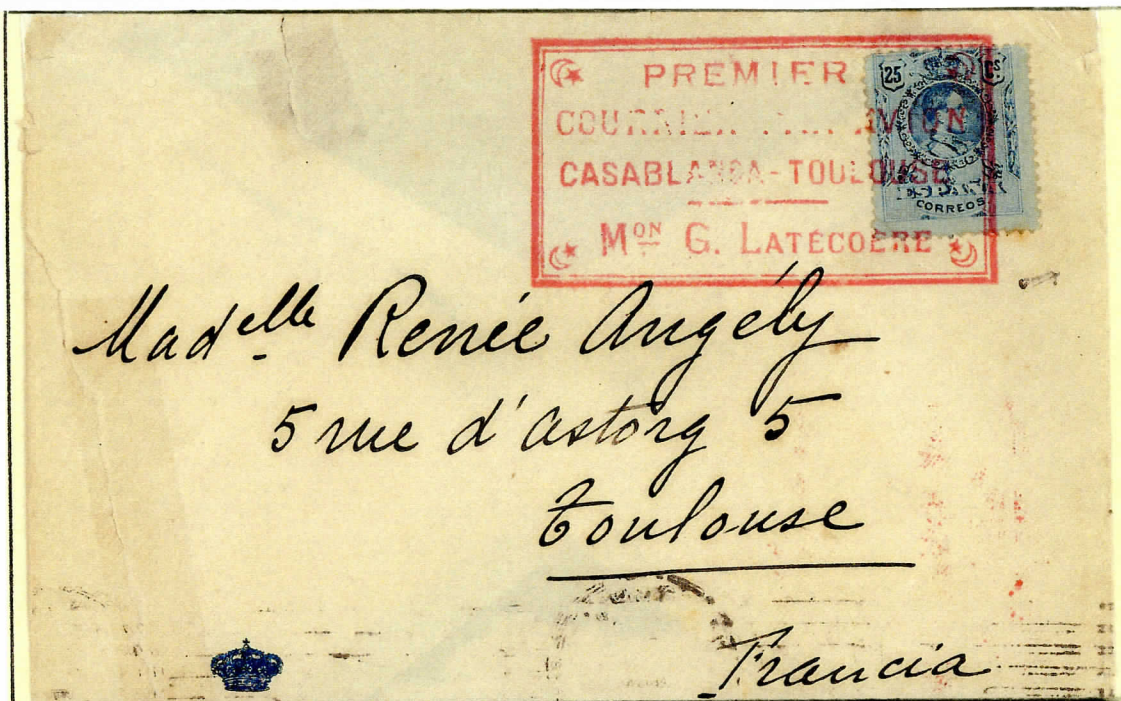 PREMIER
COURRIER PAR AVION
CASABLANCA-TOULOUSE
Mon G. LATÉCOÈRE
25 Cs
CORREOS
Madelle Renée Angély
5 rue d'astorg 5
Toulouse
Francia